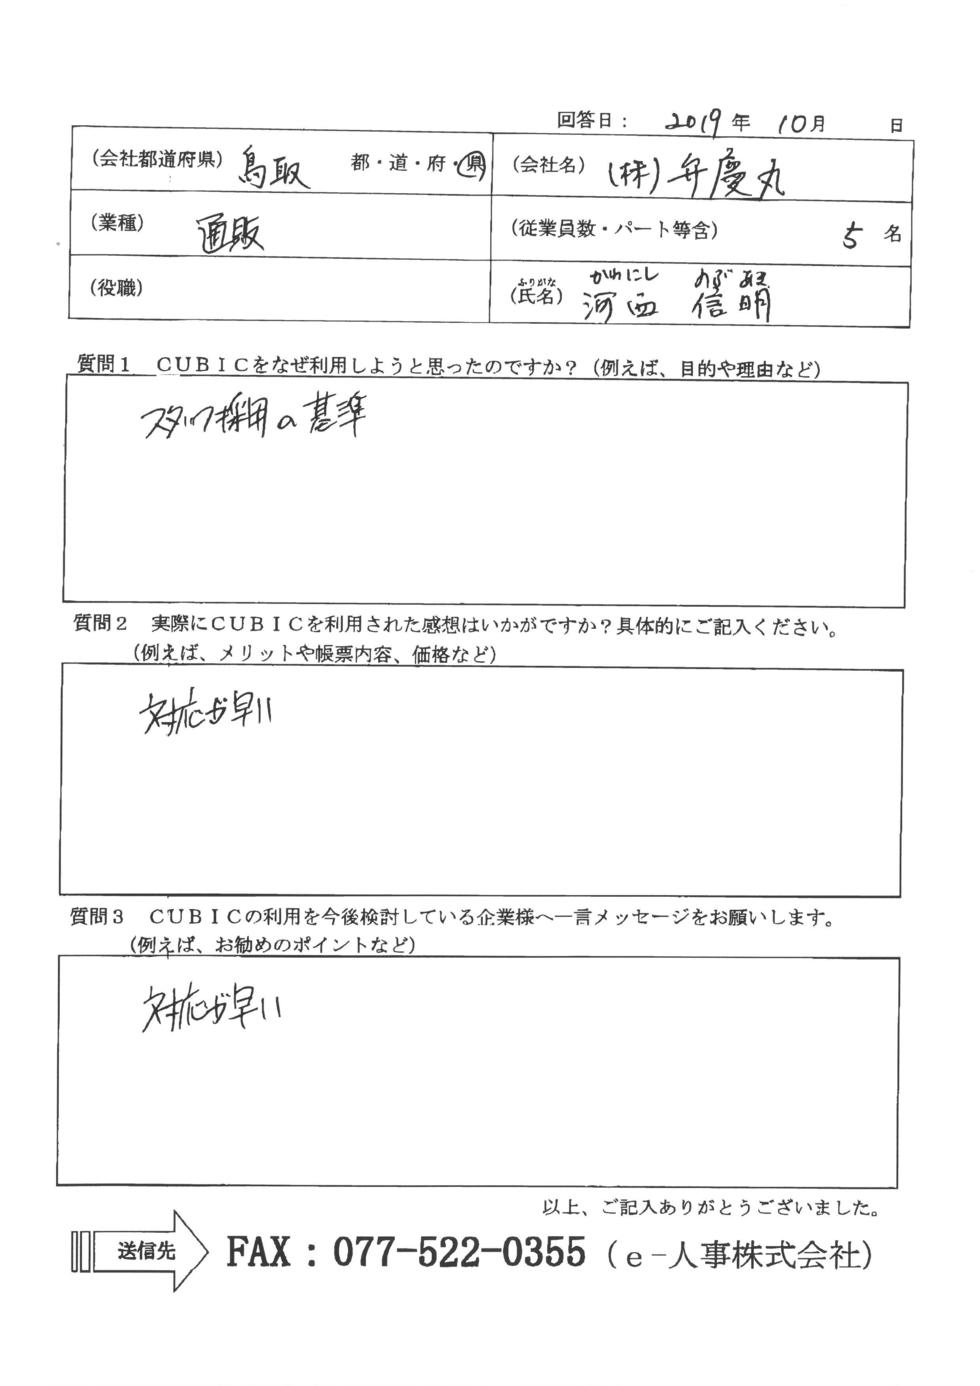 回答日： 2019年 10月 日
（会社都道府県） 鳥取 都・道・府・県
（会社名） （株）弁慶丸
（業種） 通販
（従業員数・パート等含） 5 名
（役職）
ふりがな かわにし のぶあき
（氏名） 河西 信明
質問１ ＣＵＢＩＣをなぜ利用しようと思ったのですか？（例えば、目的や理由など）
スタッフ採用の基準
質問２ 実際にＣＵＢＩＣを利用された感想はいかがですか？具体的にご記入ください。
（例えば、メリットや帳票内容、価格など）
対応が早い
質問３ ＣＵＢＩＣの利用を今後検討している企業様へ一言メッセージをお願いします。
（例えば、お勧めのポイントなど）
対応が早い
以上、ご記入ありがとうございました。
送信先 FAX：077-522-0355（ｅ-人事株式会社）